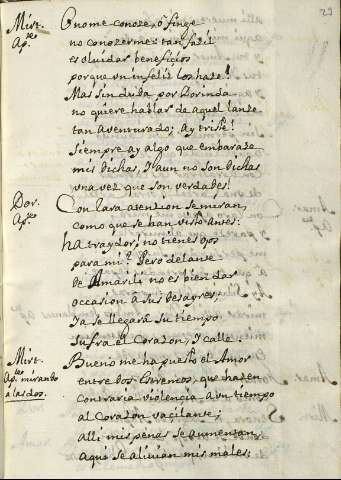 23
Mirt. O no me conoze, ò finge
Ap.te no conozerme: tan fazil
es olvidar beneficios
porque vn infeliz los haze!
Mas sin duda por Dorinda
no quiere hablar de aquel lanze
tan aventurado; ay triste!
Siempre ay algo que embaraze
mis dichas, y aun no son dichas
vna vez que son verdades!
Dor. Con rara atenzion se miran,
Ap.te como que se han visto antes:
ha traydor, no tienes ojos
para mi? Pero delante
de Amarili, no es bien dar
occasion a sus desayres;
ya se llegarà su tiempo
sufra el Corazon, y calle.
Mirt. Bueno me ha puesto el Amor
Ap.te mirando entre dos Estremos, que hazen
a las dos. contraria violencia a vn tiempo
al Corazon vazilante;
alli mis penas se aumentan,
aqui se alivian mis males;